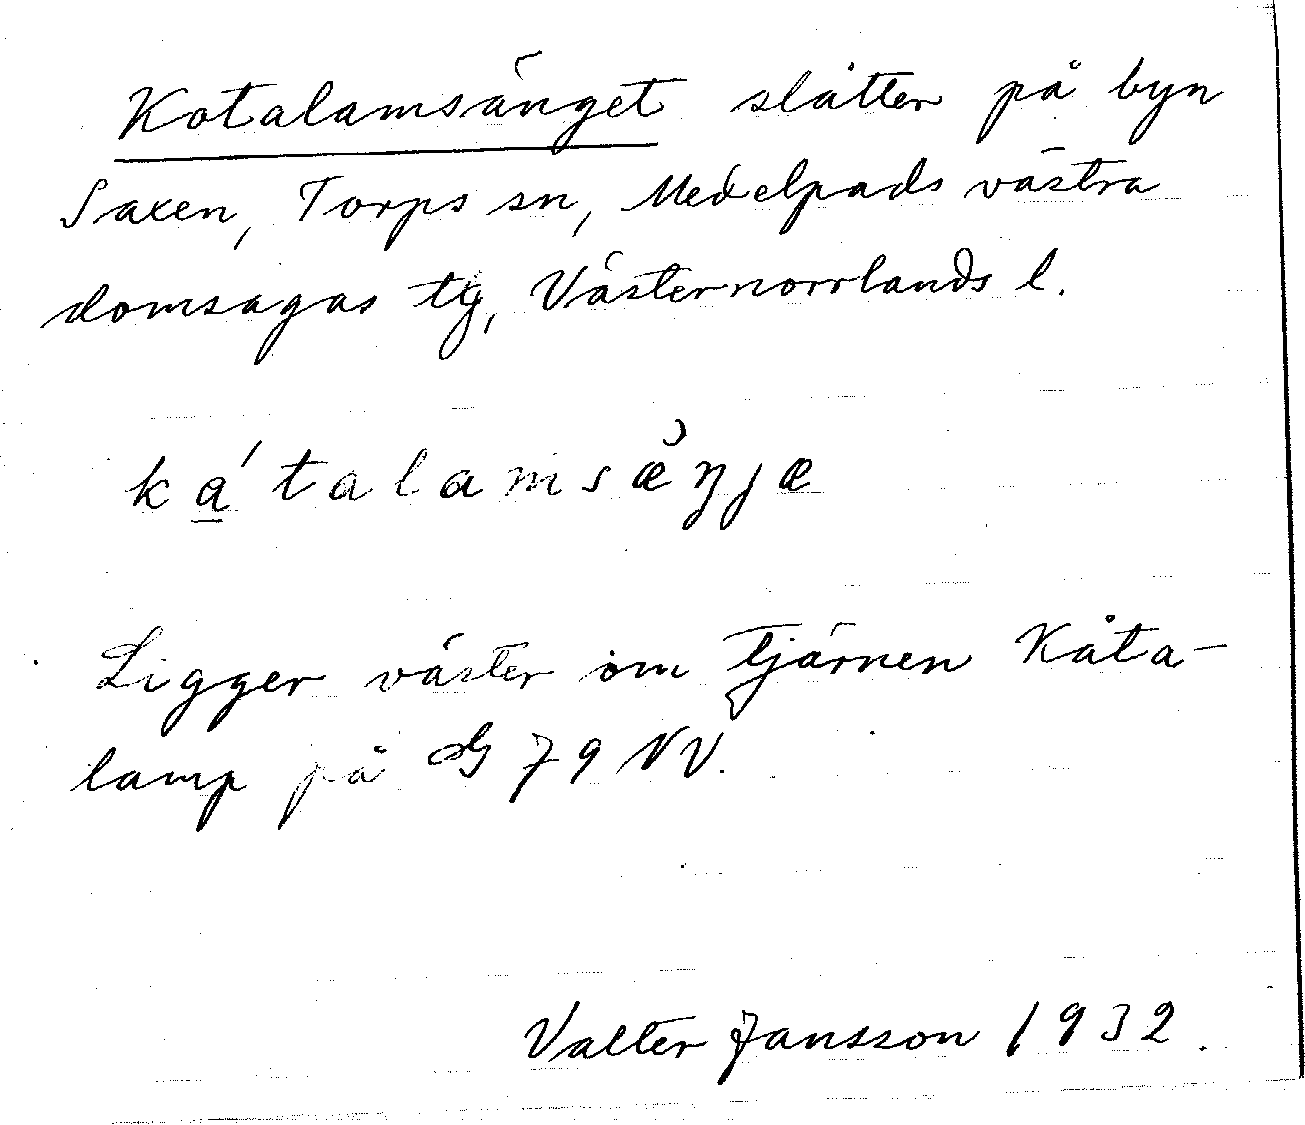 Kotalamsänget slåtter på byn
Saxen, Torps sn, Medelpads västra
domsagas tg, Västernorrlands l.
ka̲´talamsæ̆ŋjæ
Ligger väster om tjärnen Kåta-
lamp på G 79 NV.
Valter Jansson 1932.